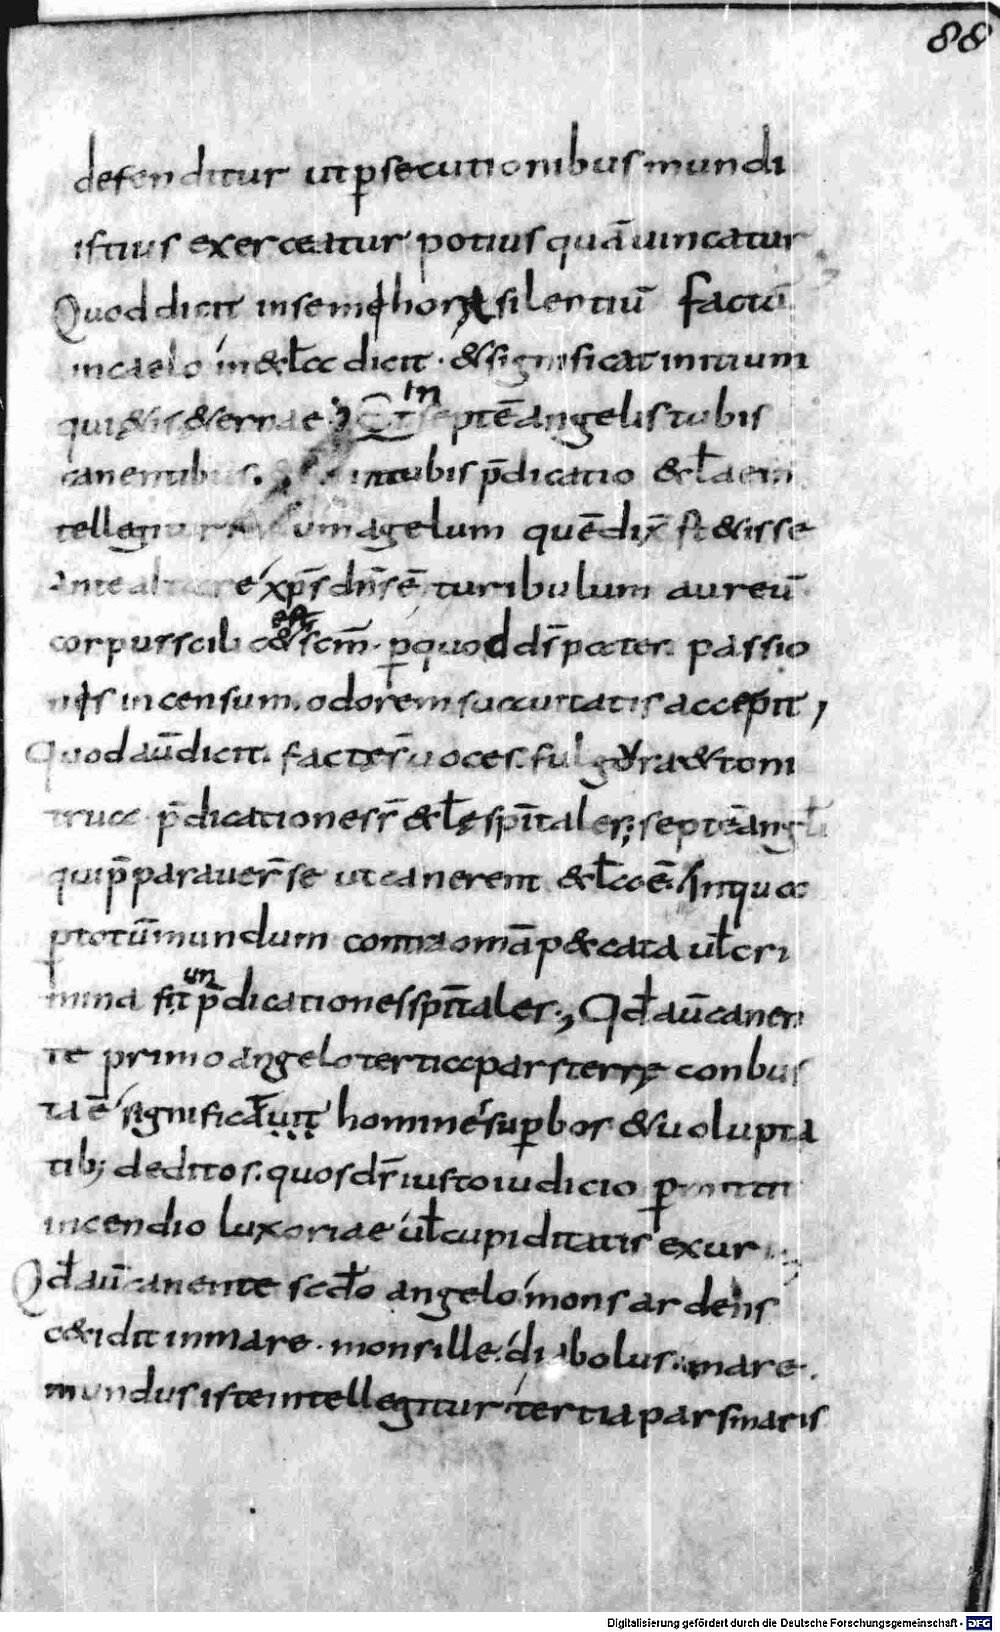 88
defenditur ut p̱secutionibus mundi
istius exerceatur potius quā uincatur
Quod dicit in semi hora silentiū factū
in caelo in &cła dicit · & significat initium
quietis &ernae · Et in septē angelis tubis
canentibus. in tubis p̄dicatio &cłae in
tellegitur um agelum quē dix̄ st&isse
ante altare xp̄s dn̄s ē, turibulum aureū
corpus scilic& est scm̄. p̱ quod ds̄ pater passio
nis incensum. odorem suauitatis accepit,
Quod aū dicit. factes̄ uoces. fulgora & toni
trua · p̄dicationes s̄ &cłę sp̄itales; septē angłi
qui p̄parauer̄ se ut canerent &cła ē. in qua
p̱ totū mundum contra omā peccata uł cri
mina sunt p̄dicationes sp̄itales., Qđ aū canen
te primo angelo tertia pars terrę conbus
ta ē significauit homines sup̱bos & uolupta
tib; deditos. quos ds̄ iusto iudicio p̱mittit
incendio luxoriae uł cupiditatis exuri
Qđ aū canente scđo angelo mons ardens
cecidit in mare · mons ille. diabolus. mare.
mundus iste intellegitur tertia pars maris
Digitalisierung gefördert durch die Deutsche Forschungsgemeinschaft - DFG